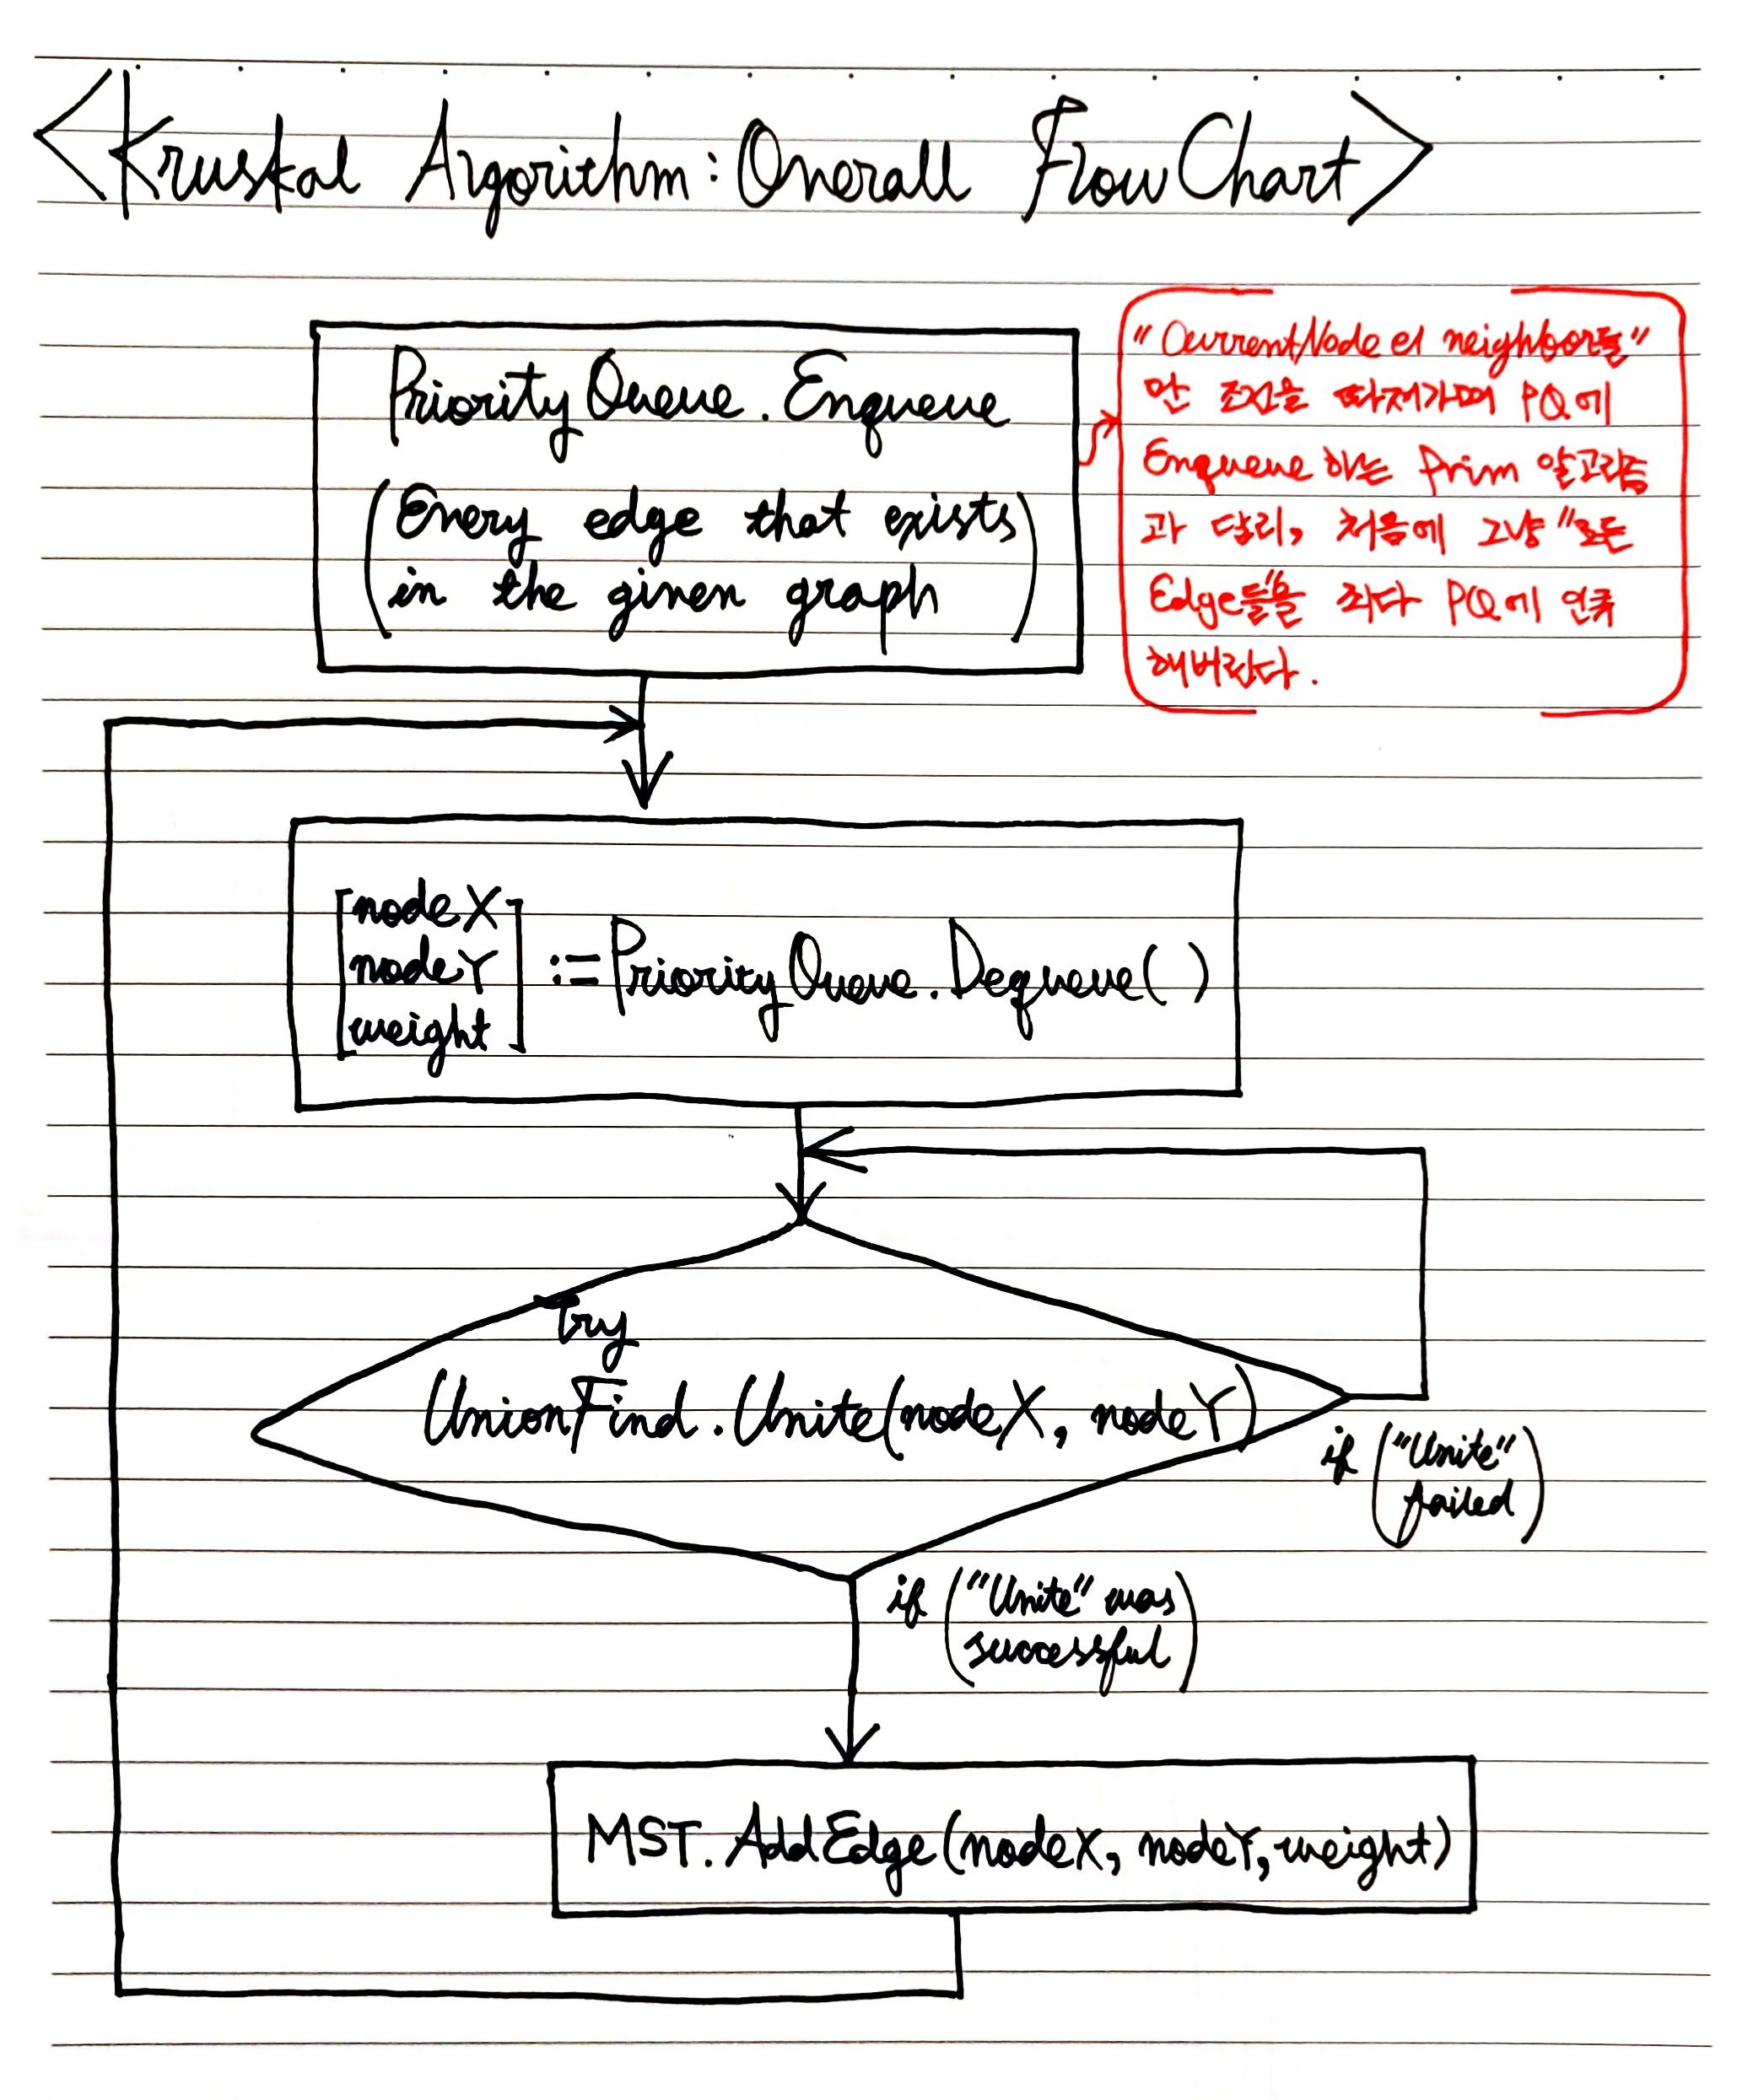 <Kruskal Algorithm: Overall Flow Chart>
Priority Queue. Enqueue
(Every edge that exists
in the given graph)
"CurrentNode의 neighbor들"
만 조건을 따져가며 PQ에
Enqueue 하는 Prim 알고리즘
과 달리, 처음에 그냥 "모든
Edge들"을 죄다 PQ에 인큐
해버린다.
[nodeX
nodeY
weight] := Priority Queue. Dequeue( )
Try
UnionFind. Unite(nodeX, nodeY)
if ("Unite"
failed)
if ("Unite" was
successful)
MST. AddEdge(nodeX, nodeY, weight)